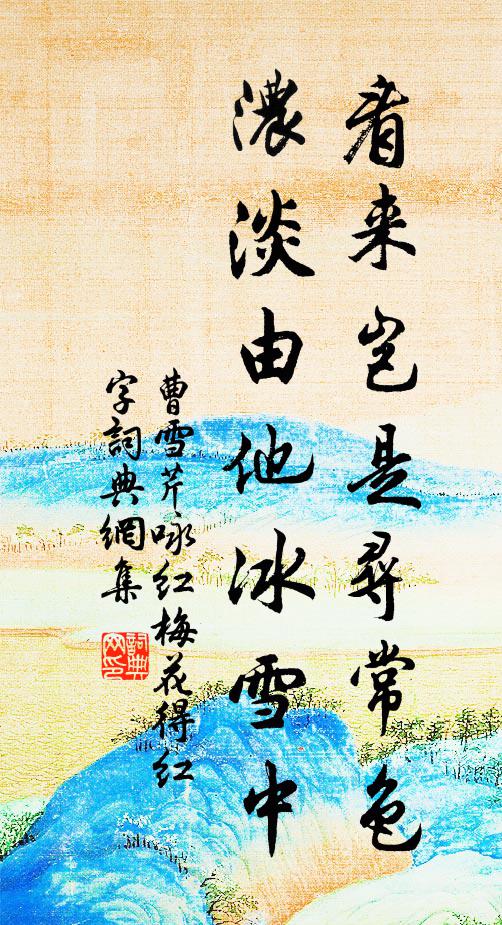 看来岂是尋常色
濃淡由他冰雪中
曹雪芹咏红梅花得红
字詞典網集
詞典網印